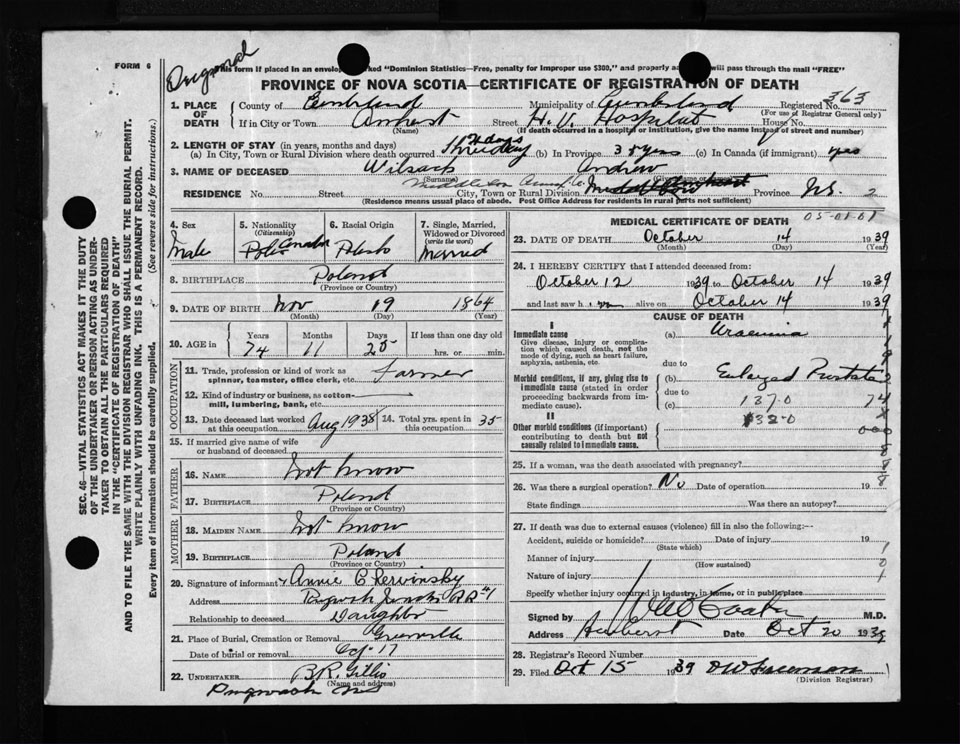 FORM 6
This form if placed in an envelope marked "Dominion Statistics—Free, penalty for improper use $300," and properly will pass through the mail "FREE"
PROVINCE OF NOVA SCOTIA—CERTIFICATE OF REGISTRATION OF DEATH
1. PLACE OF DEATH County of Cumberland Municipality of Cumberland Registered No. 363
(For use of Registrar General only)
If in City or Town Amherst Street H. V. Hospital House No.
(Name) (If death occurred in a hospital or institution, give the name instead of street and number)
2. LENGTH OF STAY (in years, months and days)
(a) In City, Town or Rural Division where death occurred 2 days (b) In Province 35 yrs (c) In Canada (if immigrant) yes
3. NAME OF DECEASED Wilsack Andrew
(Surname)
RESIDENCE No. Street City, Town or Rural Division Province N.S. 2
(Residence means usual place of abode. Post Office Address for residents in rural parts not sufficient)
05-01-01
4. Sex Male
5. Nationality (Citizenship) Canadian
6. Racial Origin Polish
7. Single, Married, Widowed or Divorced (write the word) Married
8. BIRTHPLACE Poland
(Province or Country)
9. DATE OF BIRTH Nov 19 1864
(Month) (Day) (Year)
10. AGE in Years 74 Months 11 Days 25 If less than one day old hrs. or min.
OCCUPATION
11. Trade, profession or kind of work as spinner, teamster, office clerk, etc. Farmer
12. Kind of industry or business, as cotton-mill, lumbering, bank, etc.
13. Date deceased last worked at this occupation Aug 1938 14. Total yrs. spent in this occupation 35
15. If married give name of wife or husband of deceased
FATHER
16. NAME Not know
17. BIRTHPLACE Poland
(Province or Country)
MOTHER
18. MAIDEN NAME Not know
19. BIRTHPLACE Poland
(Province or Country)
20. Signature of informant Annie Chervinsky
Address Pugwash Junction RR #1
Relationship to deceased Daughter
21. Place of Burial, Cremation or Removal Grenville
Date of burial or removal Oct 17
22. UNDERTAKER B.R. Gillis
(Name and address)
Pugwash NS
MEDICAL CERTIFICATE OF DEATH
23. DATE OF DEATH October 14 1939
(Month) (Day) (Year)
24. I HEREBY CERTIFY that I attended deceased from:
October 12 1939 to October 14 1939
and last saw h im alive on October 14 1939
CAUSE OF DEATH
I
Immediate cause (a) Uraemia
Give disease, injury or complication which caused death, not the mode of dying, such as heart failure, asphyxia, asthenia, etc.
due to
Morbid conditions, if any, giving rise to immediate cause (stated in order proceeding backwards from immediate cause). (b) Enlarged Prostate
due to
(c) 137.0 74
II
Other morbid conditions (if important) contributing to death but not causally related to immediate cause. 132.0
25. If a woman, was the death associated with pregnancy?
26. Was there a surgical operation? No Date of operation 19
State findings Was there an autopsy?
27. If death was due to external causes (violence) fill in also the following:—
Accident, suicide or homicide? Date of injury 19
(State which)
Manner of injury
(How sustained)
Nature of injury
Specify whether injury occurred in industry, in home, or in public place
Signed by M.D.
Address Amherst Date Oct 20 1939
28. Registrar's Record Number
29. Filed Oct 15 1939 D W Freeman
(Division Registrar)
SEC. 46—VITAL STATISTICS ACT MAKES IT THE DUTY
OF THE UNDERTAKER OR PERSON ACTING AS UNDERTAKER TO OBTAIN ALL THE PARTICULARS REQUIRED
IN THE "CERTIFICATE OF REGISTRATION OF DEATH"
AND TO FILE THE SAME WITH THE DIVISION REGISTRAR WHO SHALL ISSUE THE BURIAL PERMIT.
WRITE PLAINLY WITH UNFADING INK. THIS IS A PERMANENT RECORD.
Every item of information should be carefully supplied. (See reverse side for instructions.)